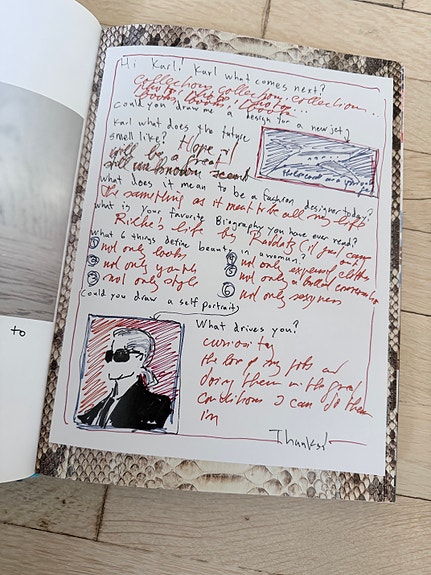 Hi Karl! Karl what comes next?
Collection, collection, collection.
Photo, Photo, Photo...
Books, Books, Books
Could you draw me a design for a new jet?
Karl what does the future
smell like? Hope it
will be a great
still unknown scent
What does it mean to be a fashion designer today?
The same thing as it meant to be all my life
What is your favorite Biography you have ever read?
Rilke's life by (it just came out
What 6 things define beauty in a woman?
① not only looks
② not only youth
③ not only style
④ not only expensive clothes
⑤ not only a conversation
⑥ not only sexyness
Could you draw a self portrait?
What drives you?
curiosity
the love of my jobs and
doing them in the great
conditions I can do them
in
Thanks!
to